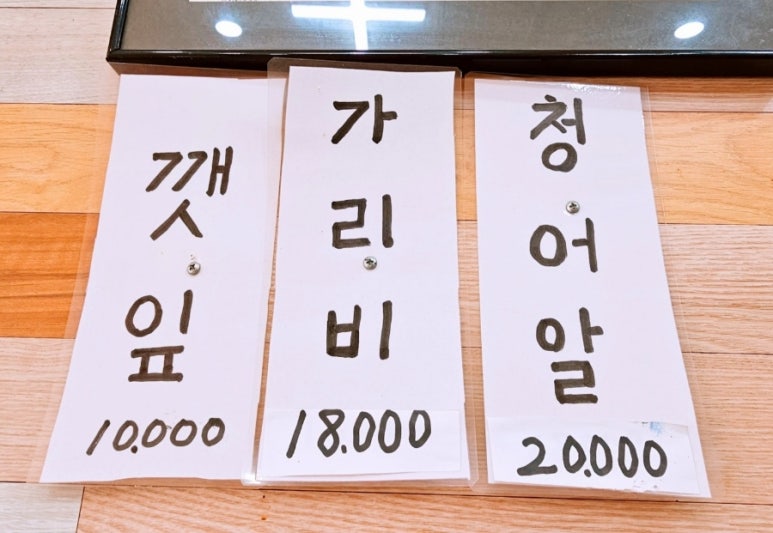 깻잎
10.000
가리비
18.000
청어알
20.000